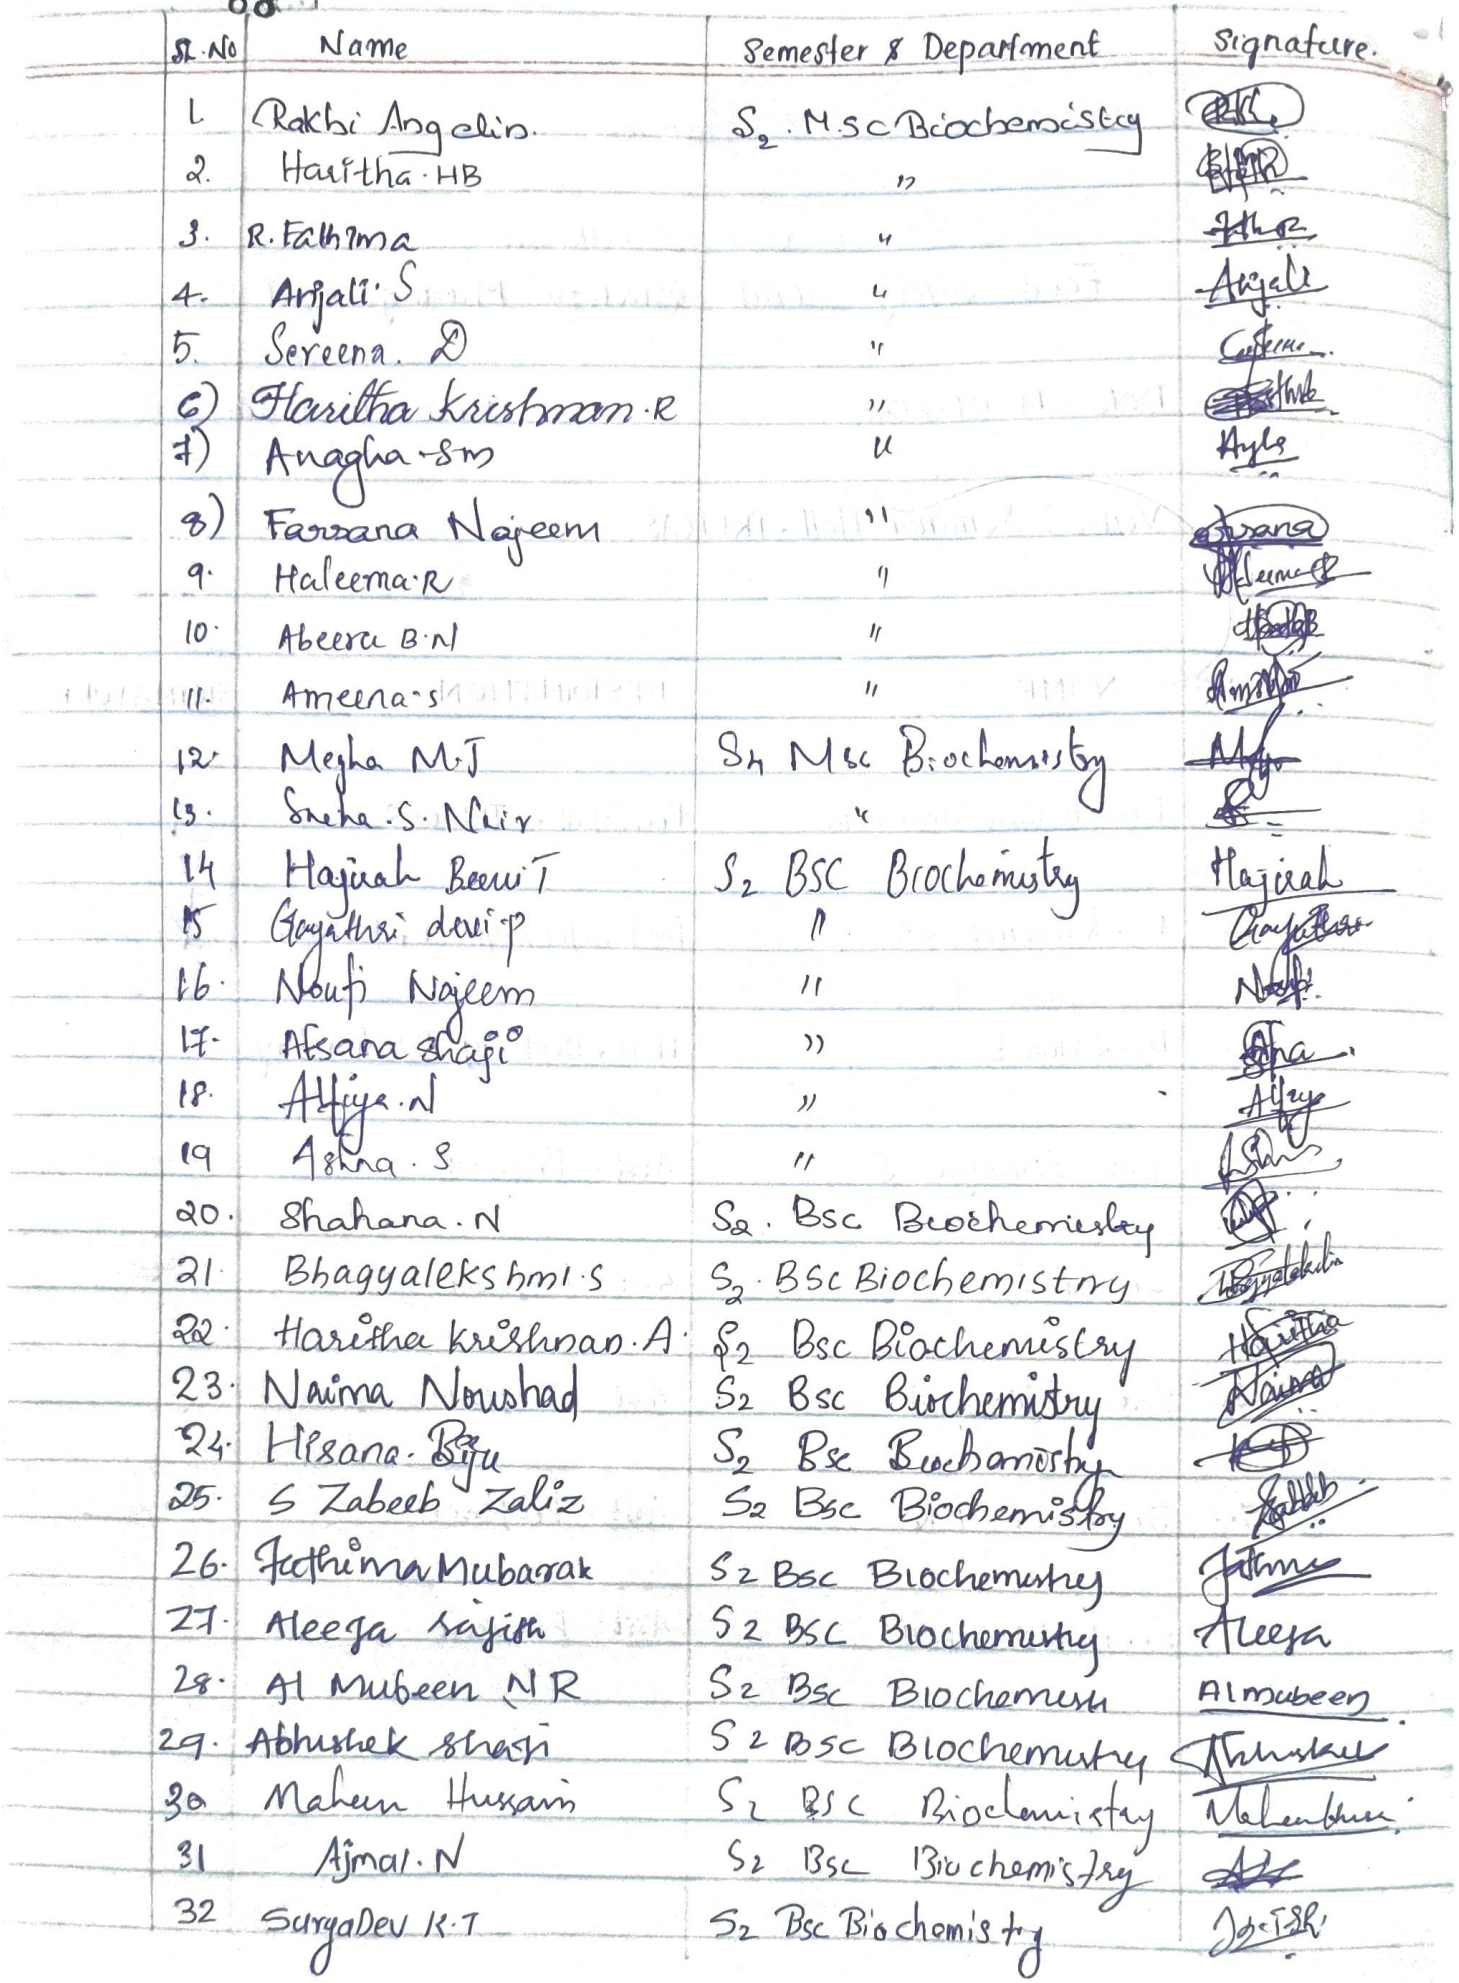 Sl. No Name Semester & Department Signature.
1. Rakhi Angelin. S2. M.Sc Biochemistry
2. Haritha. HB "
3. R. Fathima "
4. Anjali. S " Anjali
5. Sereena. D "
6) Haritha Krishnan. R "
7) Anagha. Sm "
8) Farzana Najeem "
9. Haleema. R "
10. Abeera B.N "
11. Ameena. S "
12. Megha M.J S4 Msc Biochemistry
13. Sneha. S. Nair "
14 Hajirah Beevi T S2 BSC Biochemistry Hajirah
15 Gayathri devi. p "
16. Noufi Najeem " Noufi
17. Afsana shaji "
18. Alfiya. N " Alfiy
19 Ashna. S "
20. Shahana. N S2. Bsc Biochemistry
21. Bhagyalekshmi. S S2. BSc Biochemistry
22. Haritha Krishnan. A. S2 Bsc Biochemistry Haritha
23. Naima Noushad S2 Bsc Biochemistry Naima
24. Hisana. Biju S2 Bsc Biochemistry
25. S Zabeeb Zaliz S2 Bsc Biochemistry
26. Fathima Mubarak S2 Bsc Biochemistry
27. Aleefa Sajith S2 BSC Biochemistry Aleefa
28. Al Mubeen N R S2 Bsc Biochemistr Almubeen
29. Abhishek Shaji S2 BSC Biochemistry
30 Maheen Hussain S2 BSC Biochemistry
31 Ajmal. N S2 Bsc Biochemistry
32 SuryaDev K.T S2 Bsc Biochemistry